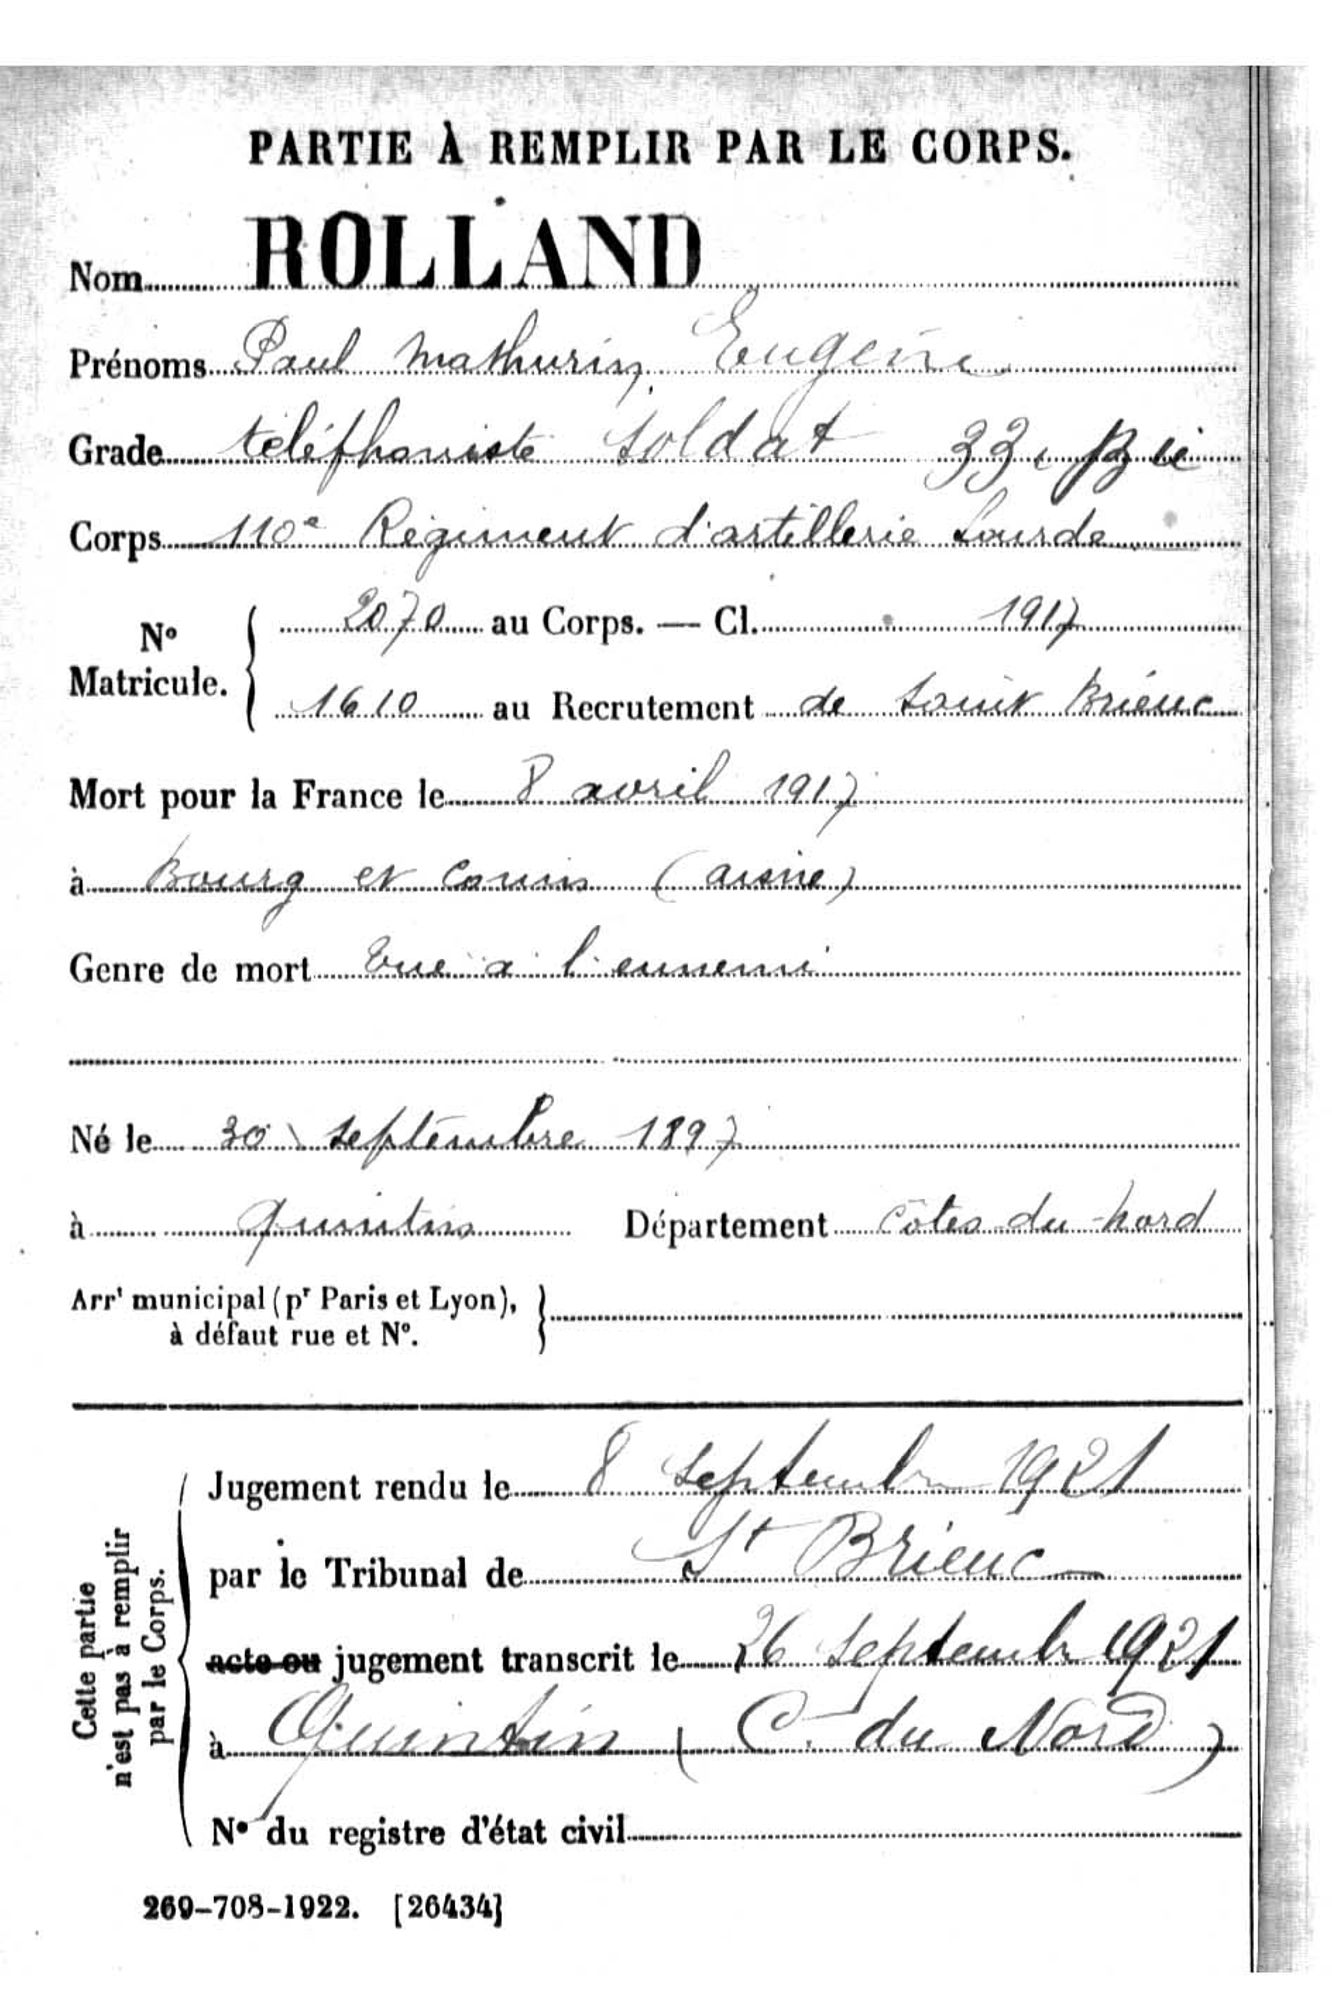 PARTIE À REMPLIR PAR LE CORPS.
Nom ROLLAND
Prénoms Paul Mathurin Eugène
Grade téléphoniste soldat 33e Bie
Corps 110e Régiment d'artillerie Lourde
No Matricule.
2070 au Corps. — Cl. 1917
1610 au Recrutement de Saint Brieuc
Mort pour la France le 8 avril 1917
à Bourg et Comin (Aisne)
Genre de mort Tué à l'ennemi
Né le 30 septembre 1897
à Quintin Département Côtes du Nord
Arrt municipal (pr Paris et Lyon),
à défaut rue et No.
Cette partie
n'est pas à remplir
par le Corps.
Jugement rendu le 8 septembre 1921
par le Tribunal de St Brieuc
acte ou jugement transcrit le 26 septembre 1921
à Quintin (C. du Nord)
No du registre d'état civil
269-708-1922. [26434]